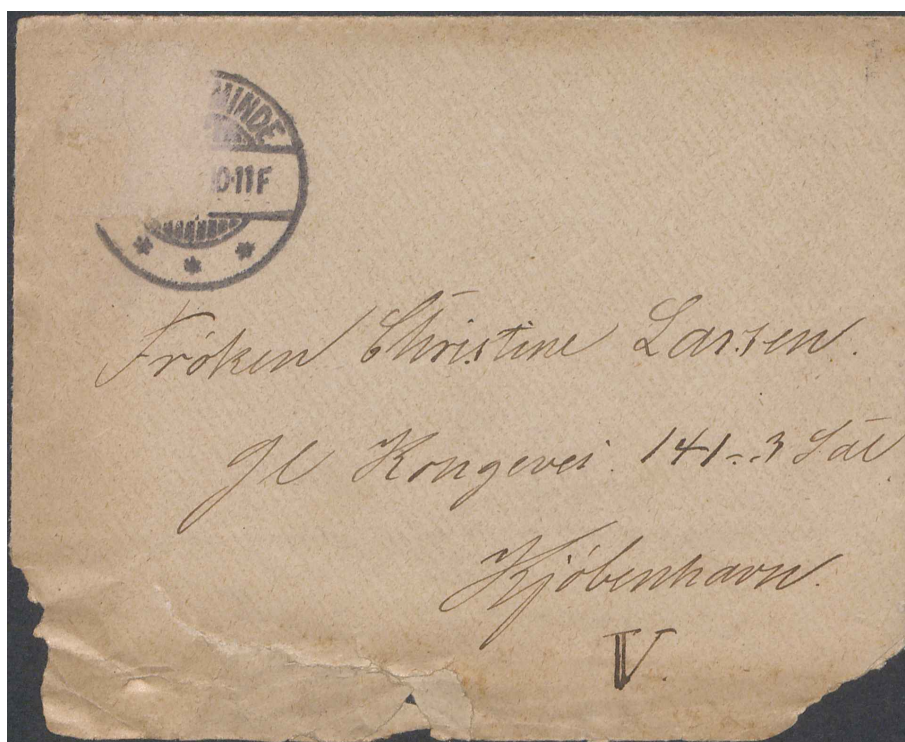 MINDE
10-11F
Frøken Christine Larsen.
Gl Kongevei. 141-3 Sal
Kjöbenhavn.
V.